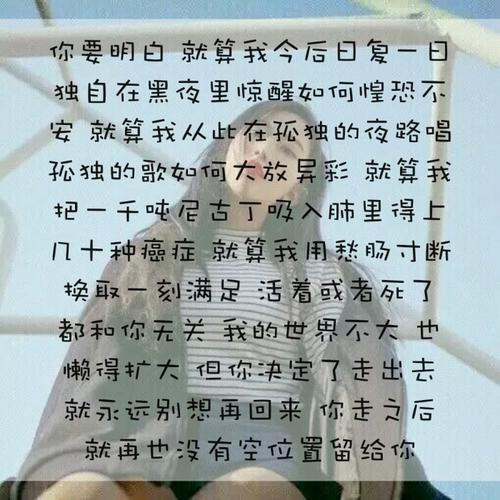 你要明白 就算我今后日复一日
独自在黑夜里惊醒如何惶恐不
安 就算我从此在孤独的夜路唱
孤独的歌如何大放异彩 就算我
把一千吨尼古丁吸入肺里得上
几十种癌症 就算我用愁肠寸断
换取一刻满足 活着或者死了
都和你无关 我的世界不大 也
懒得扩大 但你决定了走出去
就永远别想再回来 你走之后
就再也没有空位置留给你